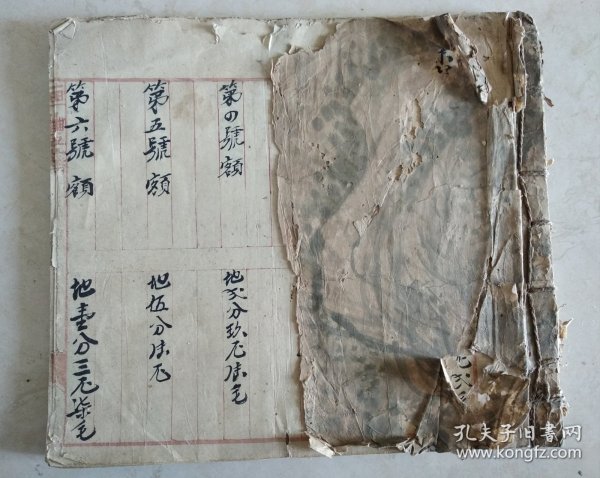 第四號額
地弍分玖厘陆毛
第五號額
地伍分陆厘
第六號額
地壹分三厘柒毛
孔夫子旧書网
www.kongfz.com